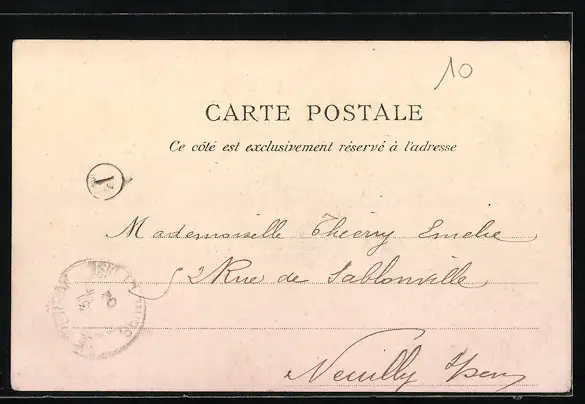 10
CARTE POSTALE
Ce côté est exclusivement réservé à l'adresse
Y
Mademoiselle Thierry Emelie
2 Rue de Sablonville
Neuilly